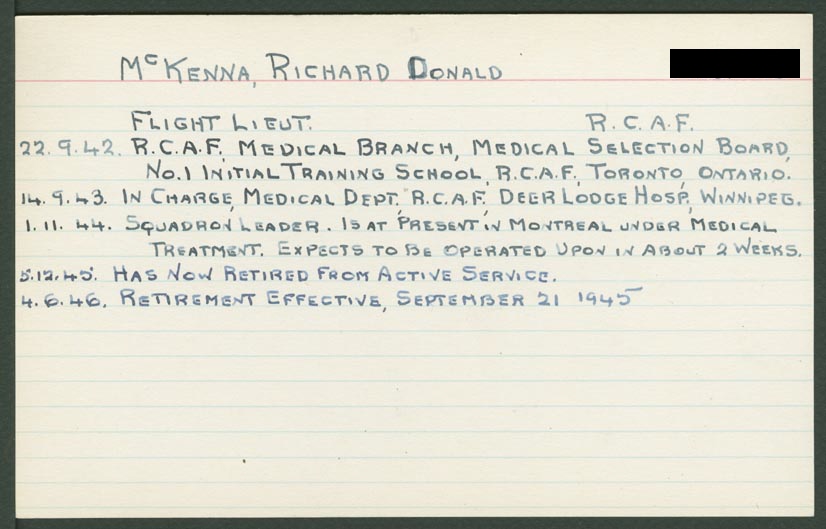 McKENNA, RICHARD DONALD
FLIGHT LIEUT. R.C.A.F.
22.9.42. R.C.A.F. MEDICAL BRANCH, MEDICAL SELECTION BOARD,
No.1 INITIAL TRAINING SCHOOL, R.C.A.F., TORONTO, ONTARIO.
14.9.43. IN CHARGE, MEDICAL DEPT. R.C.A.F. DEER LODGE HOSP, WINNIPEG.
1.11.44. SQUADRON LEADER. IS AT PRESENT IN MONTREAL UNDER MEDICAL
TREATMENT. EXPECTS TO BE OPERATED UPON IN ABOUT 2 WEEKS.
5.12.45. HAS NOW RETIRED FROM ACTIVE SERVICE.
4.6.46. RETIREMENT EFFECTIVE, SEPTEMBER 21 1945